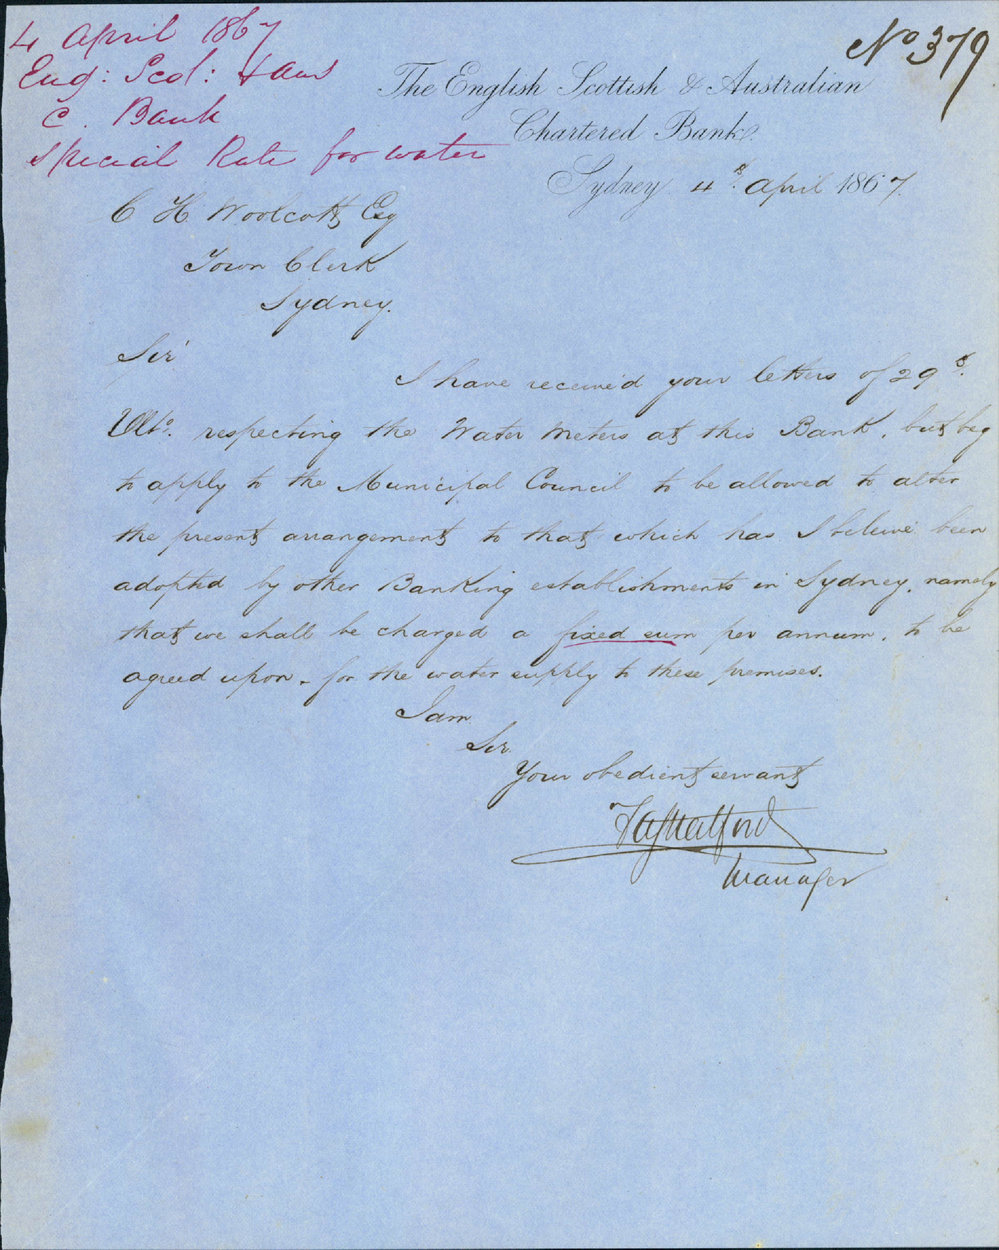 4 April 1867
Eng: Scot: & Aus
C. Bank
Special Rate for water
No 379
The English Scottish & Australian
Chartered Bank.
Sydney 4th. April 1867.
C H Woolcott Esq
Town Clerk
Sydney.
Sir
I have received your letters of 29th.
Ulto. respecting the Water Meters at this Bank, but beg
to apply to the Municipal Council to be allowed to alter
the present arrangement to that which has I believe been
adopted by other Banking establishments in Sydney, namely
that we shall be charged a fixed sum per annum, to be
agreed upon, for the water supply to these premises.
I am
Sir
Your obedient servant
Manager